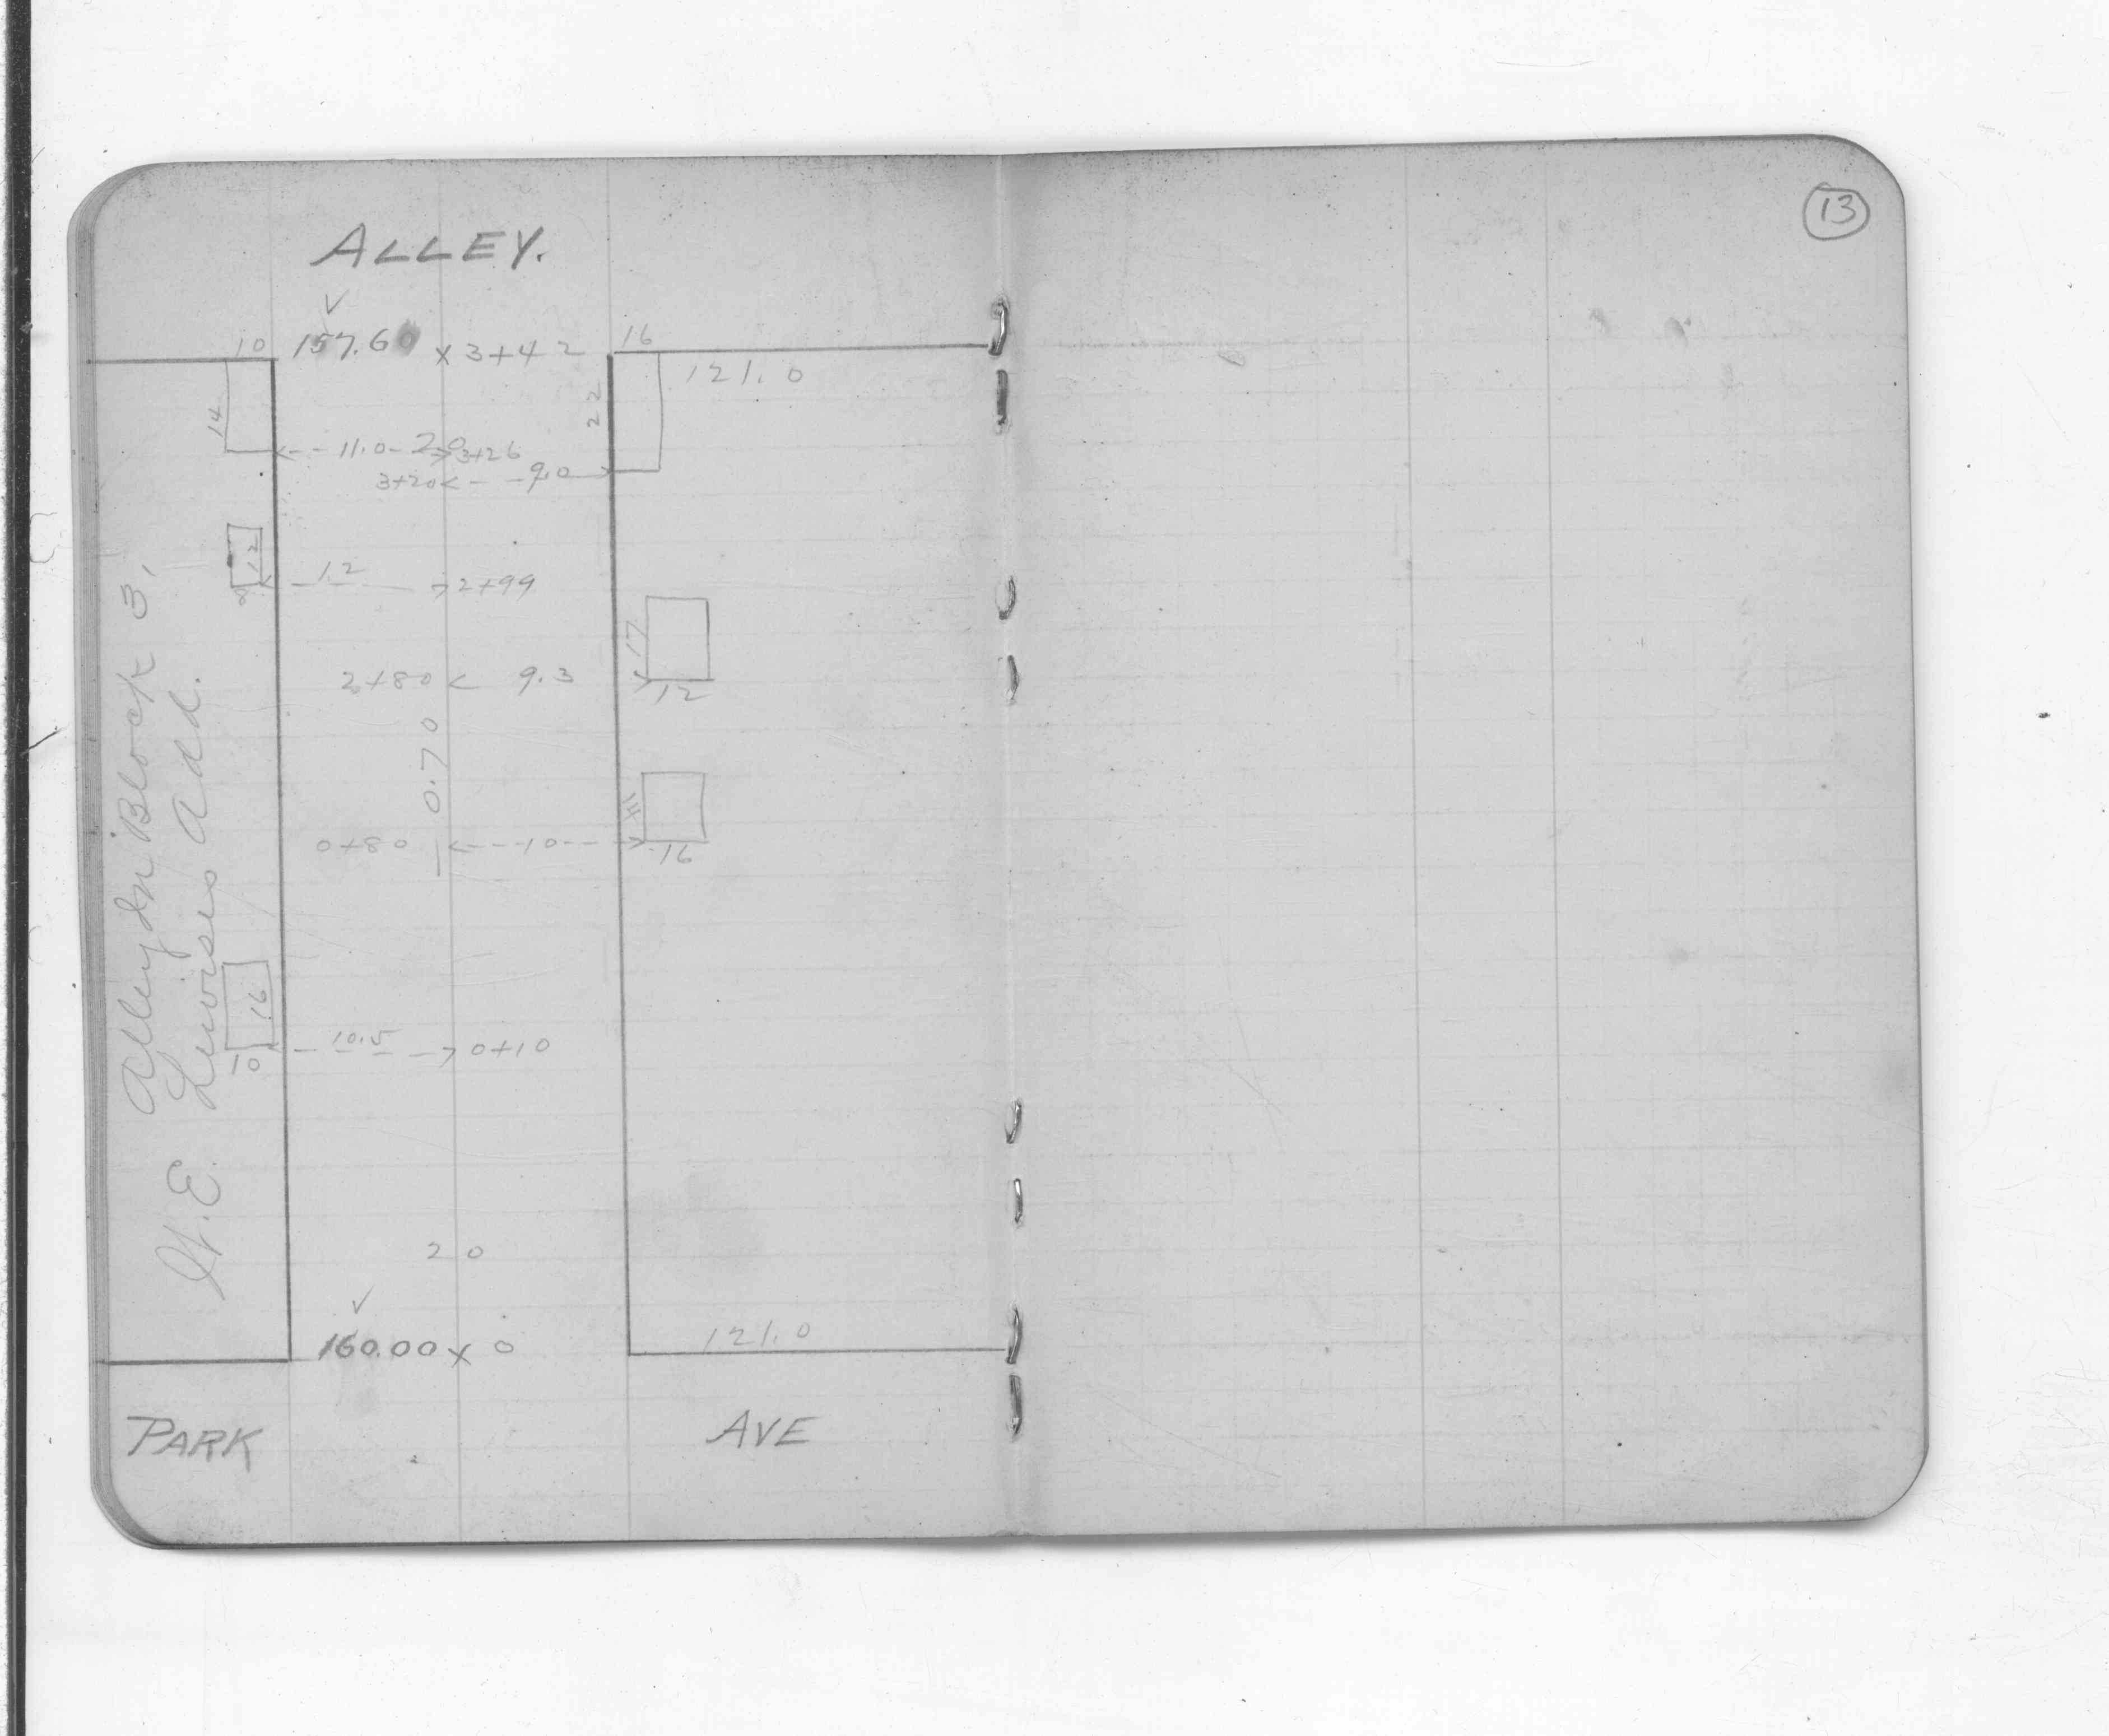 13
ALLEY.
10 157.60 x 3+42 16
121.0
14
22
11.0 20 3+26
3+20 9.0
12
8
1.2 2+99
17
2+80 9.3
12
0.70
0+80 10
16
16
10.5 0+10
10
Alley In Block 3,
Add.
20
160.00 x 0 121.0
PARK AVE